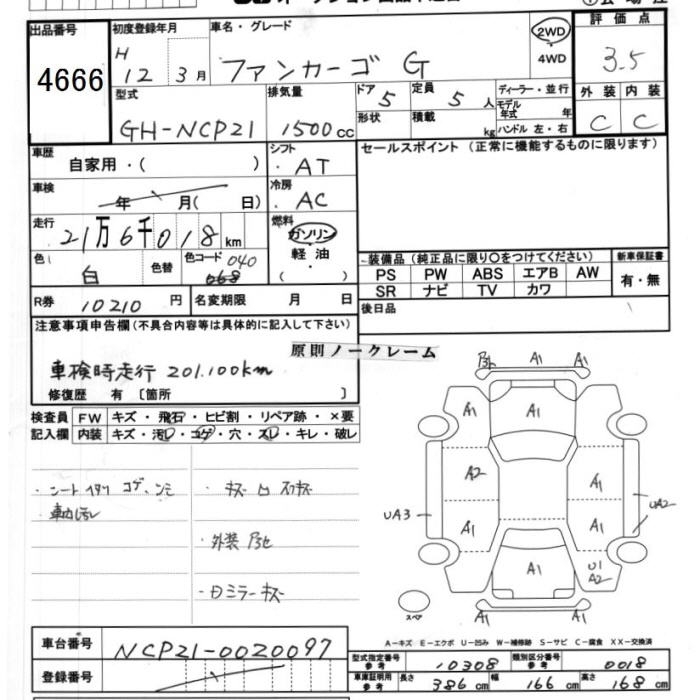 出品番号 4666
初度登録年月 H 12 3月
車名・グレード ファンカーゴ G
2WD
4WD
評価点 3.5
型式 GH-NCP21
排気量 1500cc
ドア 5
定員 5人
形状
積載 kg
ディーラー・並行
モデル年式 年
ハンドル 左・右
外装 内装
C C
車歴 自家用・( )
シフト ・AT
セールスポイント (正常に機能するものに限ります)
車検 年 月( 日)
冷房 ・AC
走行 21万6千018km
燃料 ガソリン
軽油
( )
色 白
色替
色コード 040
068
装備品 (純正品に限り〇をつけてください)
新車保証書
PS PW ABS エアB AW
SR ナビ TV カワ
有・無
R券 10210円
名変期限 月 日
後日品
注意事項申告欄(不具合内容等は具体的に記入して下さい)
原則ノークレーム
車検時走行 201.100km
修復歴 有 〔箇所 〕
検査員記入欄
FW キズ・飛石・ヒビ割・リペア跡・×要
内装 キズ・汚レ・コゲ・穴・スレ・キレ・破レ
・シートヘタリ コゲ、シミ
・車内汚レ
・外装
・ミラーキズ
A1 A1
A1 A1 A1
A2 A1
UA3 A1 A1 UA2
A1 U1
A2
A1
スペア
A-キズ E-エクボ U-凹み W-補修跡 S-サビ C-腐食 XX-交換済
車台番号 NCP21-0020097
登録番号
型式指定番号 参考 10308
類別区分番号 参考 0018
車庫証明用 参考 長さ 386cm 幅 166cm 高さ 168cm